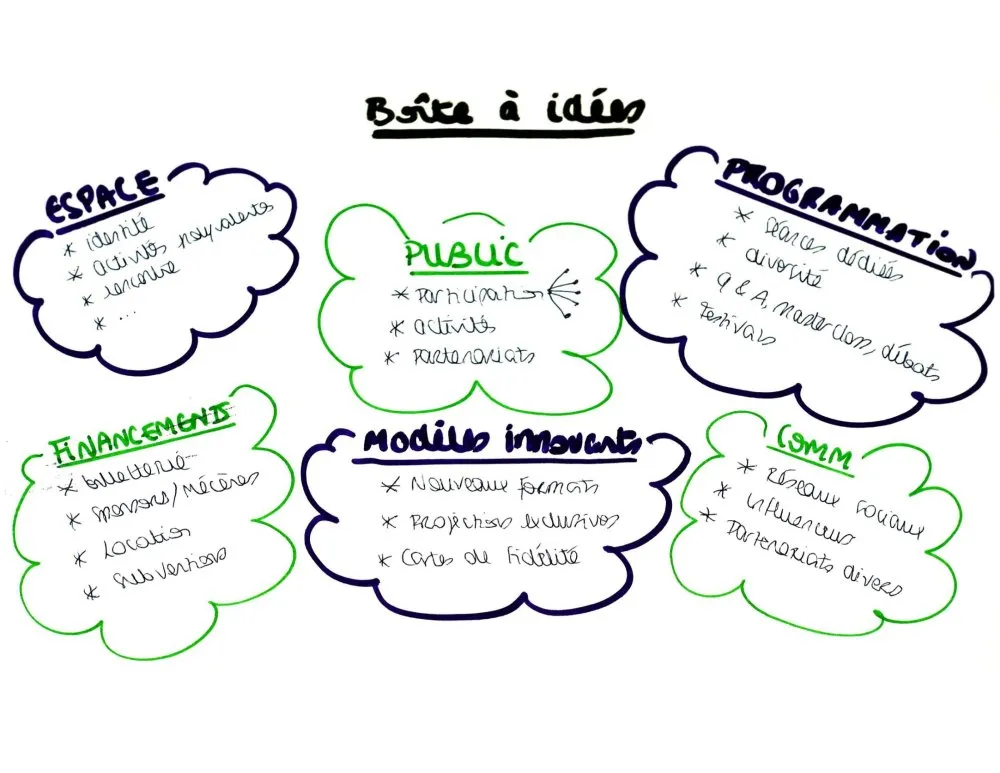 Boîte à idées
ESPACE
* identité
* activités polyvalentes
* rencontre
* ...
PUBLIC
* Participation
* activités
* Partenariats
PROGRAMMATION
* Séances dédiées
* diversité
* Q & A, masterclass, débats
* Festivals
FINANCEMENTS
* billetterie
* sponsors/Mécènes
* Location
* Subventions
Modèles innovants
* Nouveaux formats
* Projections exclusives
* Cartes de fidélité
COMM
* Réseaux sociaux
* influenceurs
* Partenariats divers